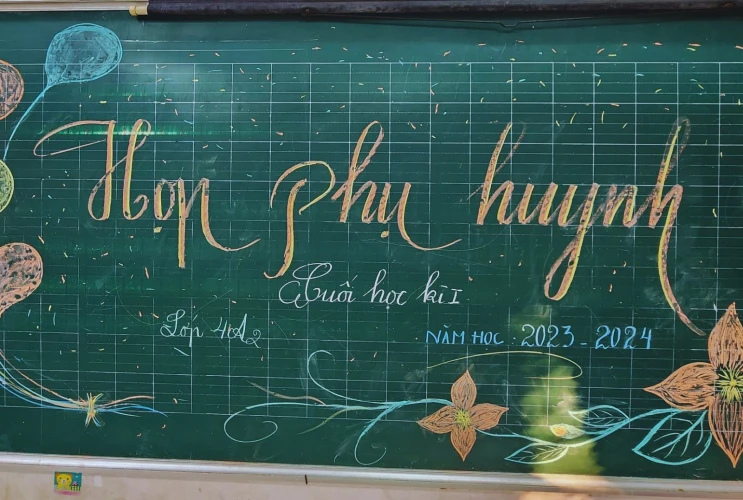 Họp phụ huynh
Cuối học kì I
Lớp 4A2
NĂM HỌC : 2023 - 2024